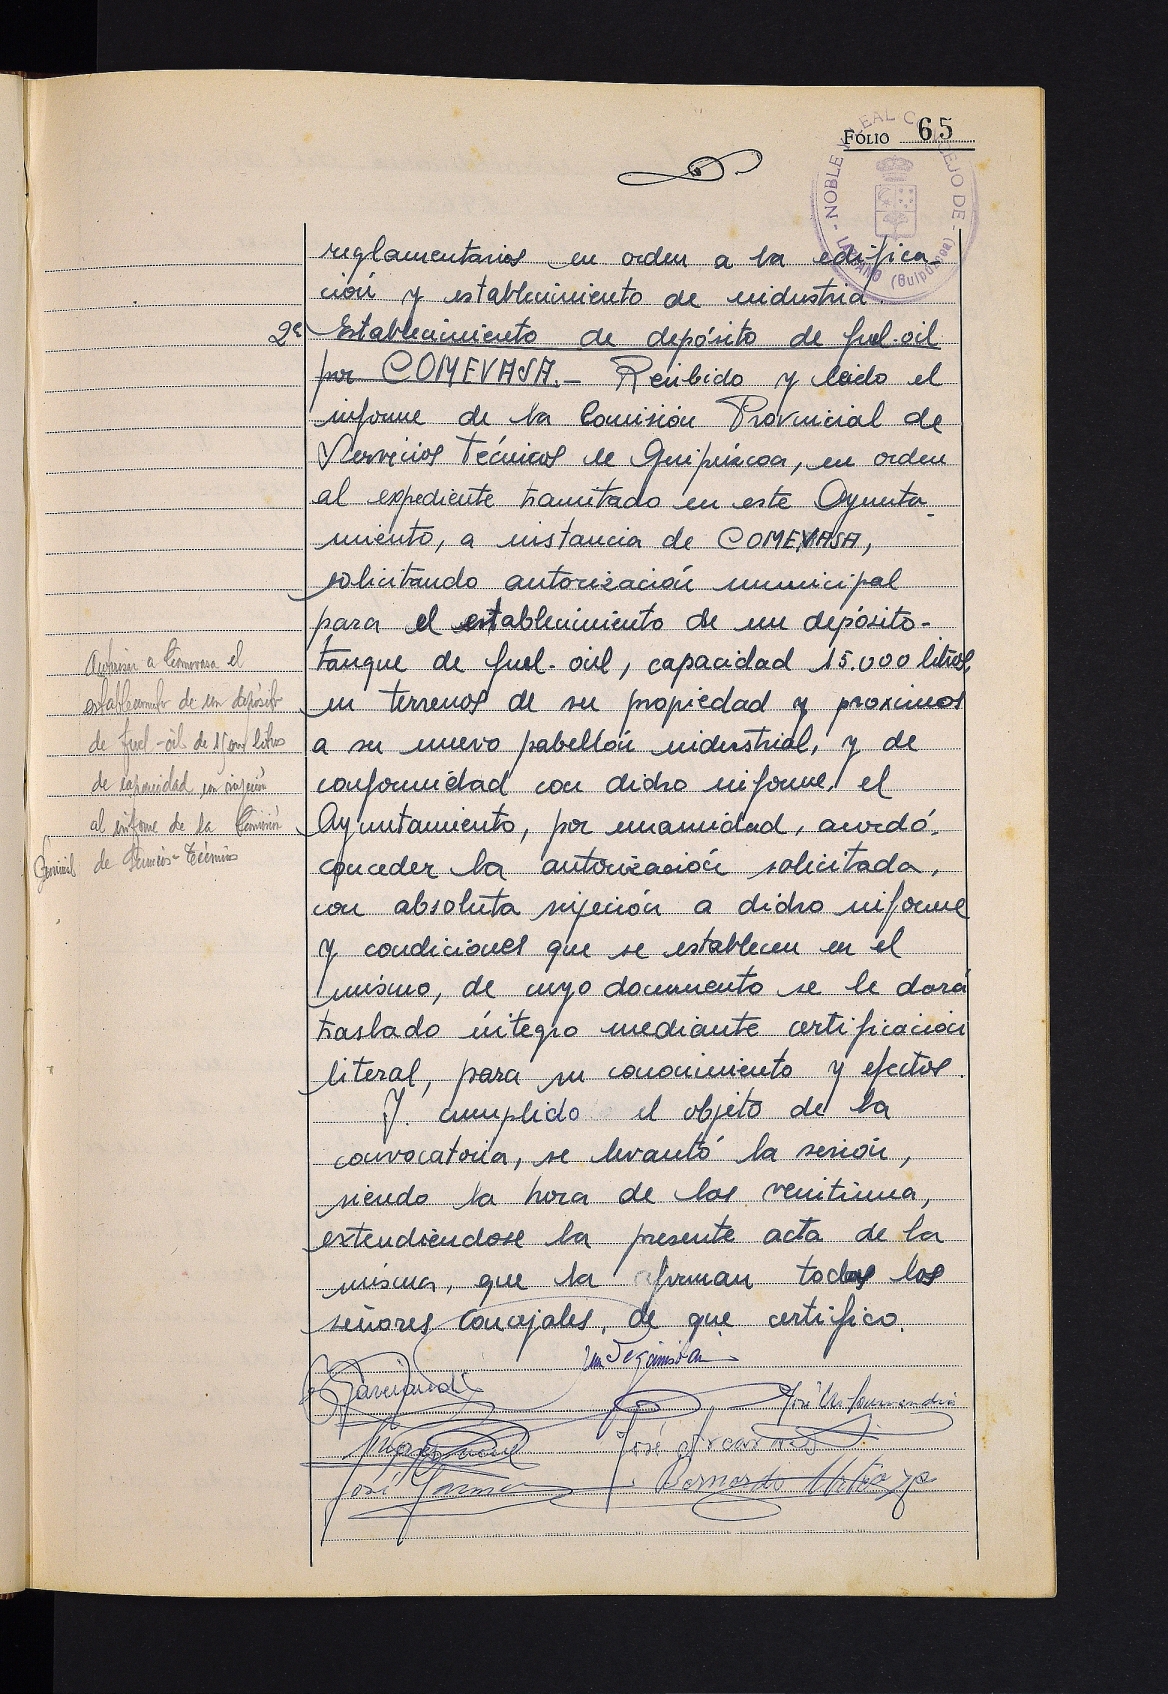 FOLIO 65
NOBLE LEAL CEJO DE
(Guipúzcoa)
reglamentarios en orden a la edifica_
ción y establecimiento de industria.
2º Establecimiento de depósito de fuel-oil
por COMEVASA.- Recibido y leido el
informe de la Comisión Provincial de
Servicios Técnicos de Guipúzcoa, en orden
al expediente tramitado en este Ayunta_
miento, a instancia de COMEVASA,
solicitando autorización municipal
para el establecimiento de un depósito-
tanque de fuel-oil, capacidad 15.000 litros,
en terrenos de su propiedad y proximos
a su nuevo pabellón industrial, y de
conformidad con dicho informe, el
Ayuntamiento, por unanimidad, acordó.
conceder la autorización solicitada,
con absoluta sujeción a dicho informe
y condiciones que se establecen en el
mismo, de cuyo documento se le dará
traslado íntegro mediante certificación
literal, para su conocimiento y efectos.
Y cumplido el objeto de la
convocatoria, se levantó la sesión,
siendo la hora de las veintiuna,
extendiéndose la presente acta de la
misma, que la firman todos los
señores Concejales, de que certifico.
José
José
Bernardo
a Comevasa el
establecimiento de un depósito
de fuel-oil de 15.000 litros
de capacidad, con sujeción
al informe de la Comisión
de Servicios Técnicos